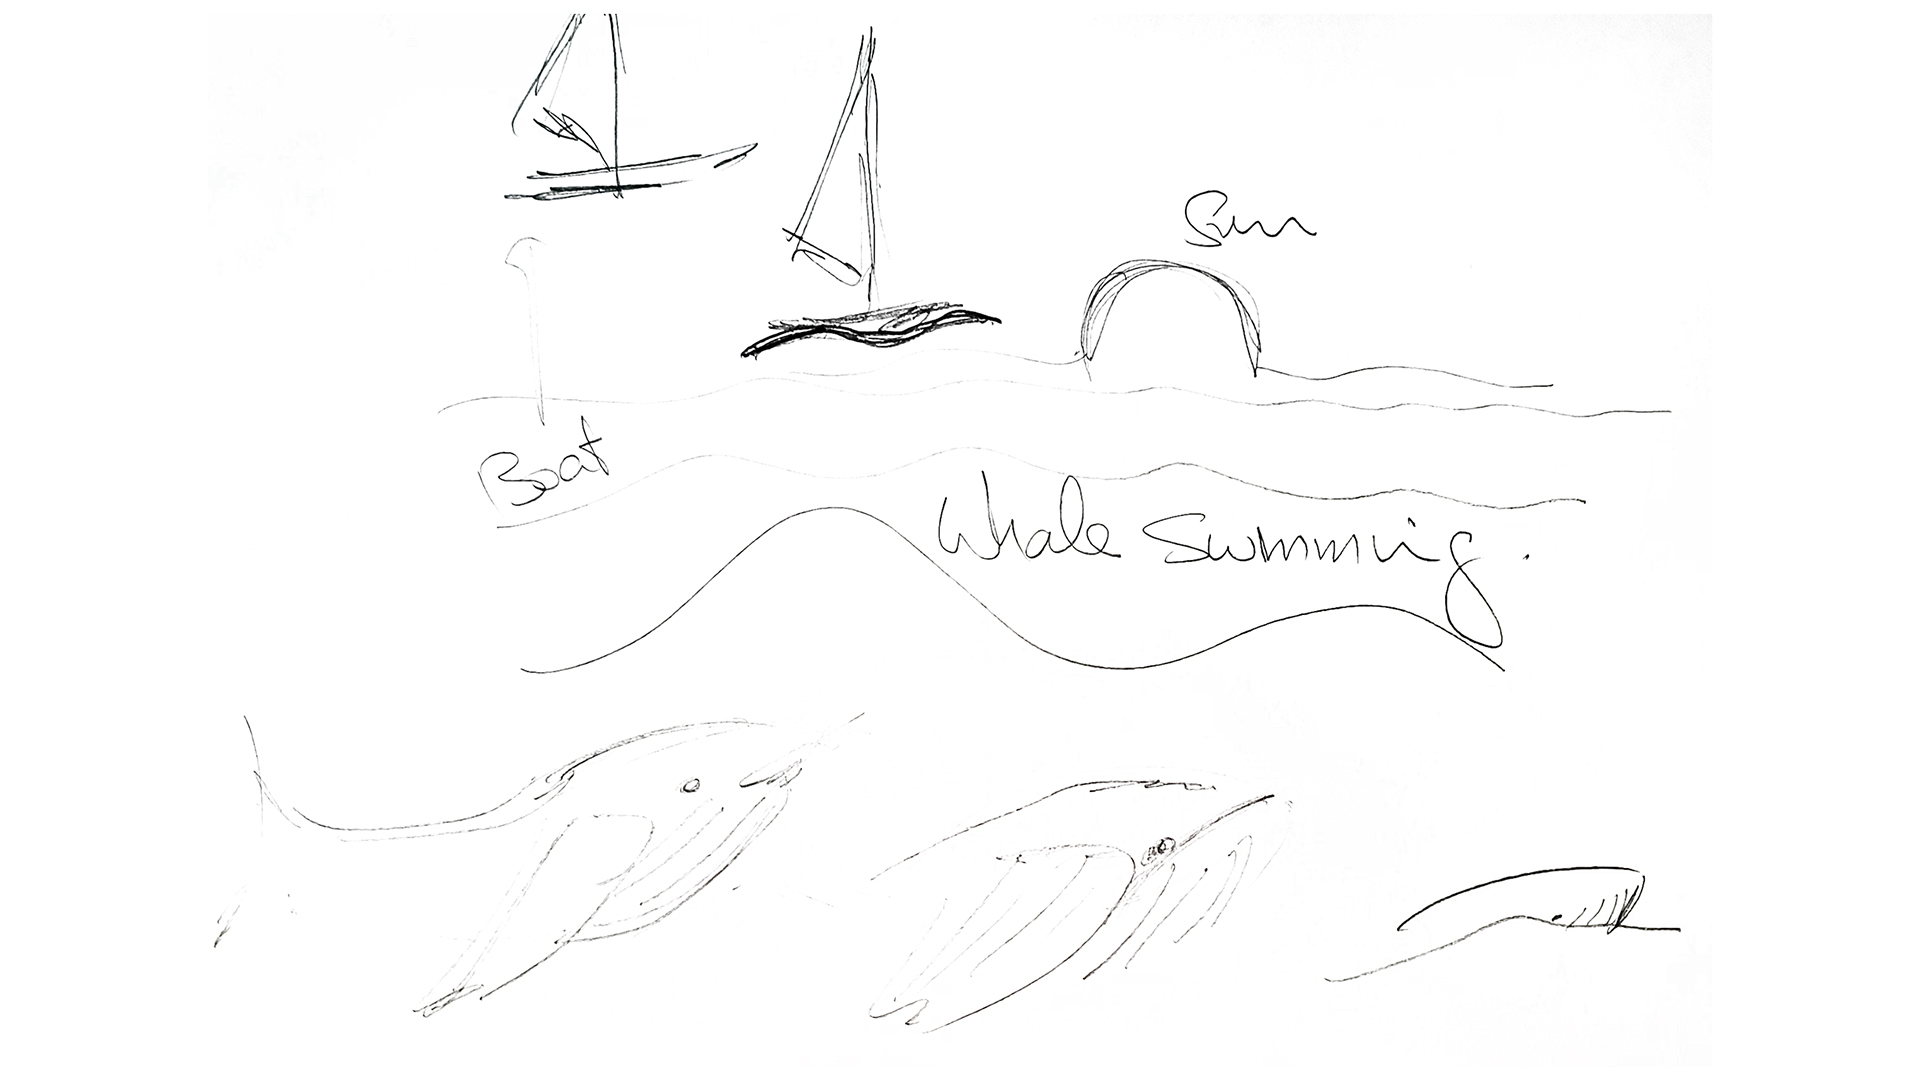 Sun
Boat
Whale Swimming.